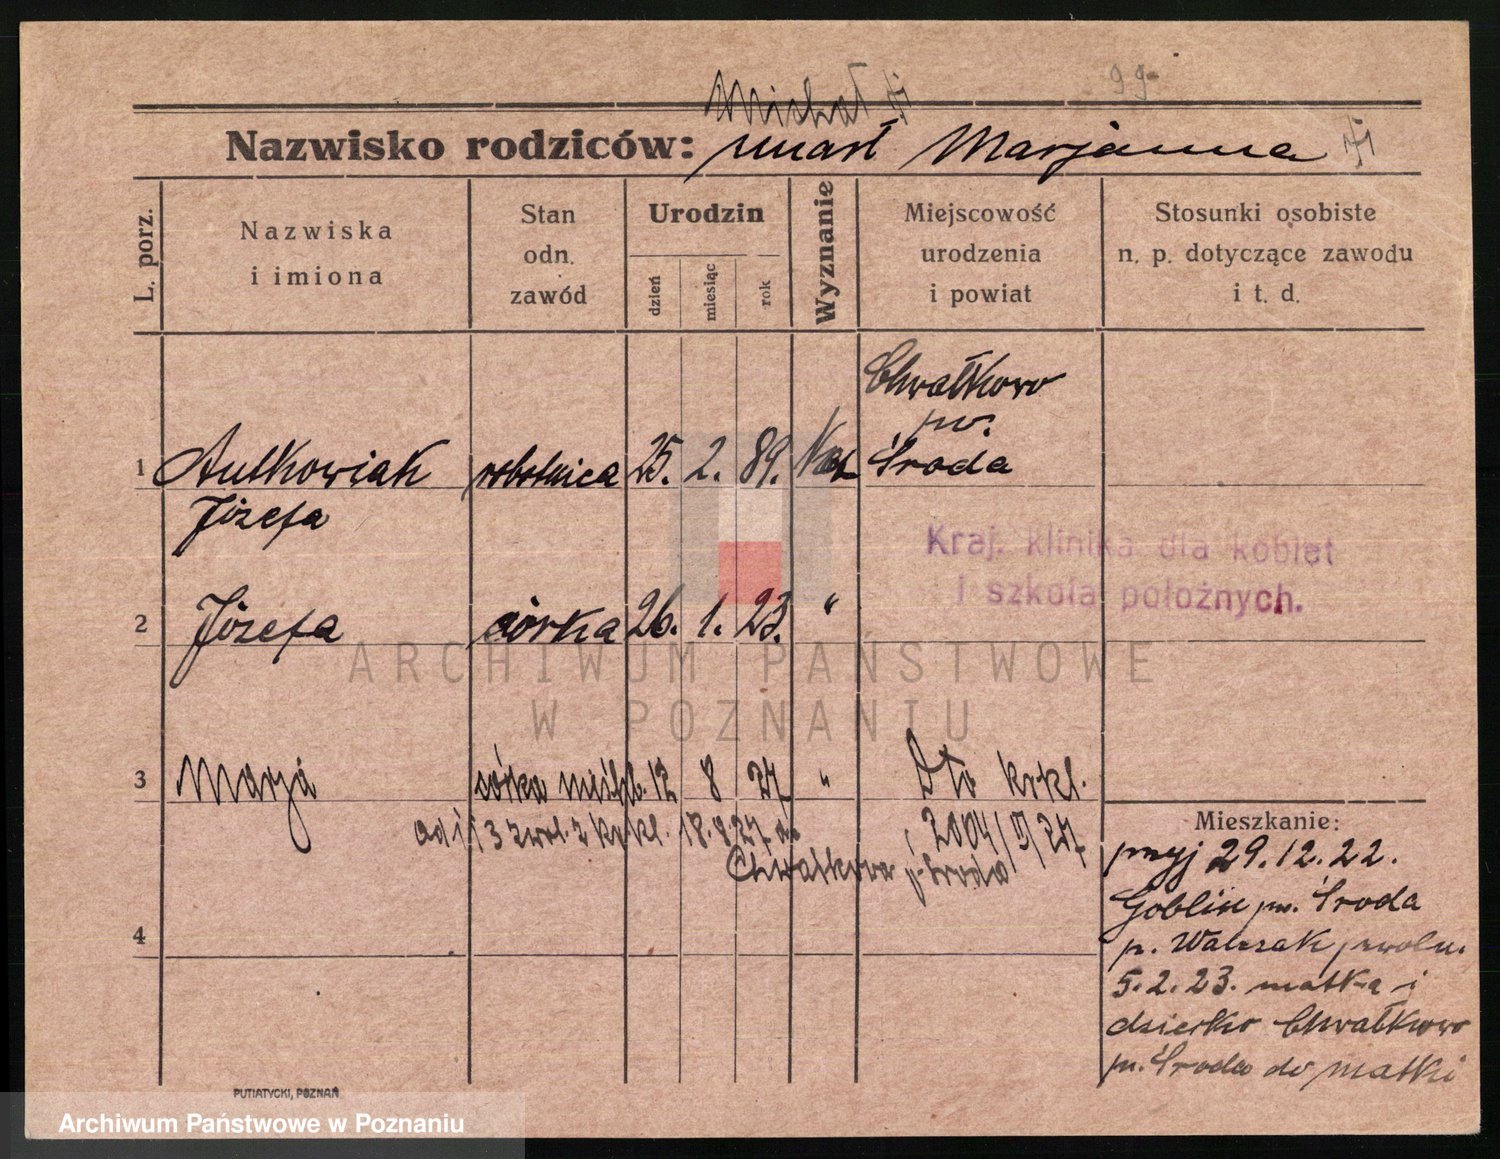 99-
Michał
Nazwisko rodziców: umarł Marjanna
L. porz.
Nazwiska
i imiona
Stan
odn.
zawód
Urodzin
dzień
miesiąc
rok
Wyznanie
Miejscowość
urodzenia
i powiat
Stosunki osobiste
n. p. dotyczące zawodu
i t. d.
Chwałkowo
pw.
1 Antkowiak robotnica 25. 2. 89. Kat Środa
Józefa
Kraj. klinika dla kobiet
i szkoła położnych.
2 Józefa córka 26. 1. 23. "
ARCHIWUM PAŃSTWOWE
W POZNANIU
3 Marja córka 12 8 27 " Dto krkl.
ad 1 i 3 zwol. z krkl. 18.8.27 do 2004/ /27
Chwałkowa p. Środa
4
Mieszkanie:
przyj 29.12.22.
pw. Środa
p. Walczak zwoln.
5.2.23. matka i
dziecko Chwałkowo
pw. Środa do matki
PUTIATYCKI, POZNAŃ
Archiwum Państwowe w Poznaniu